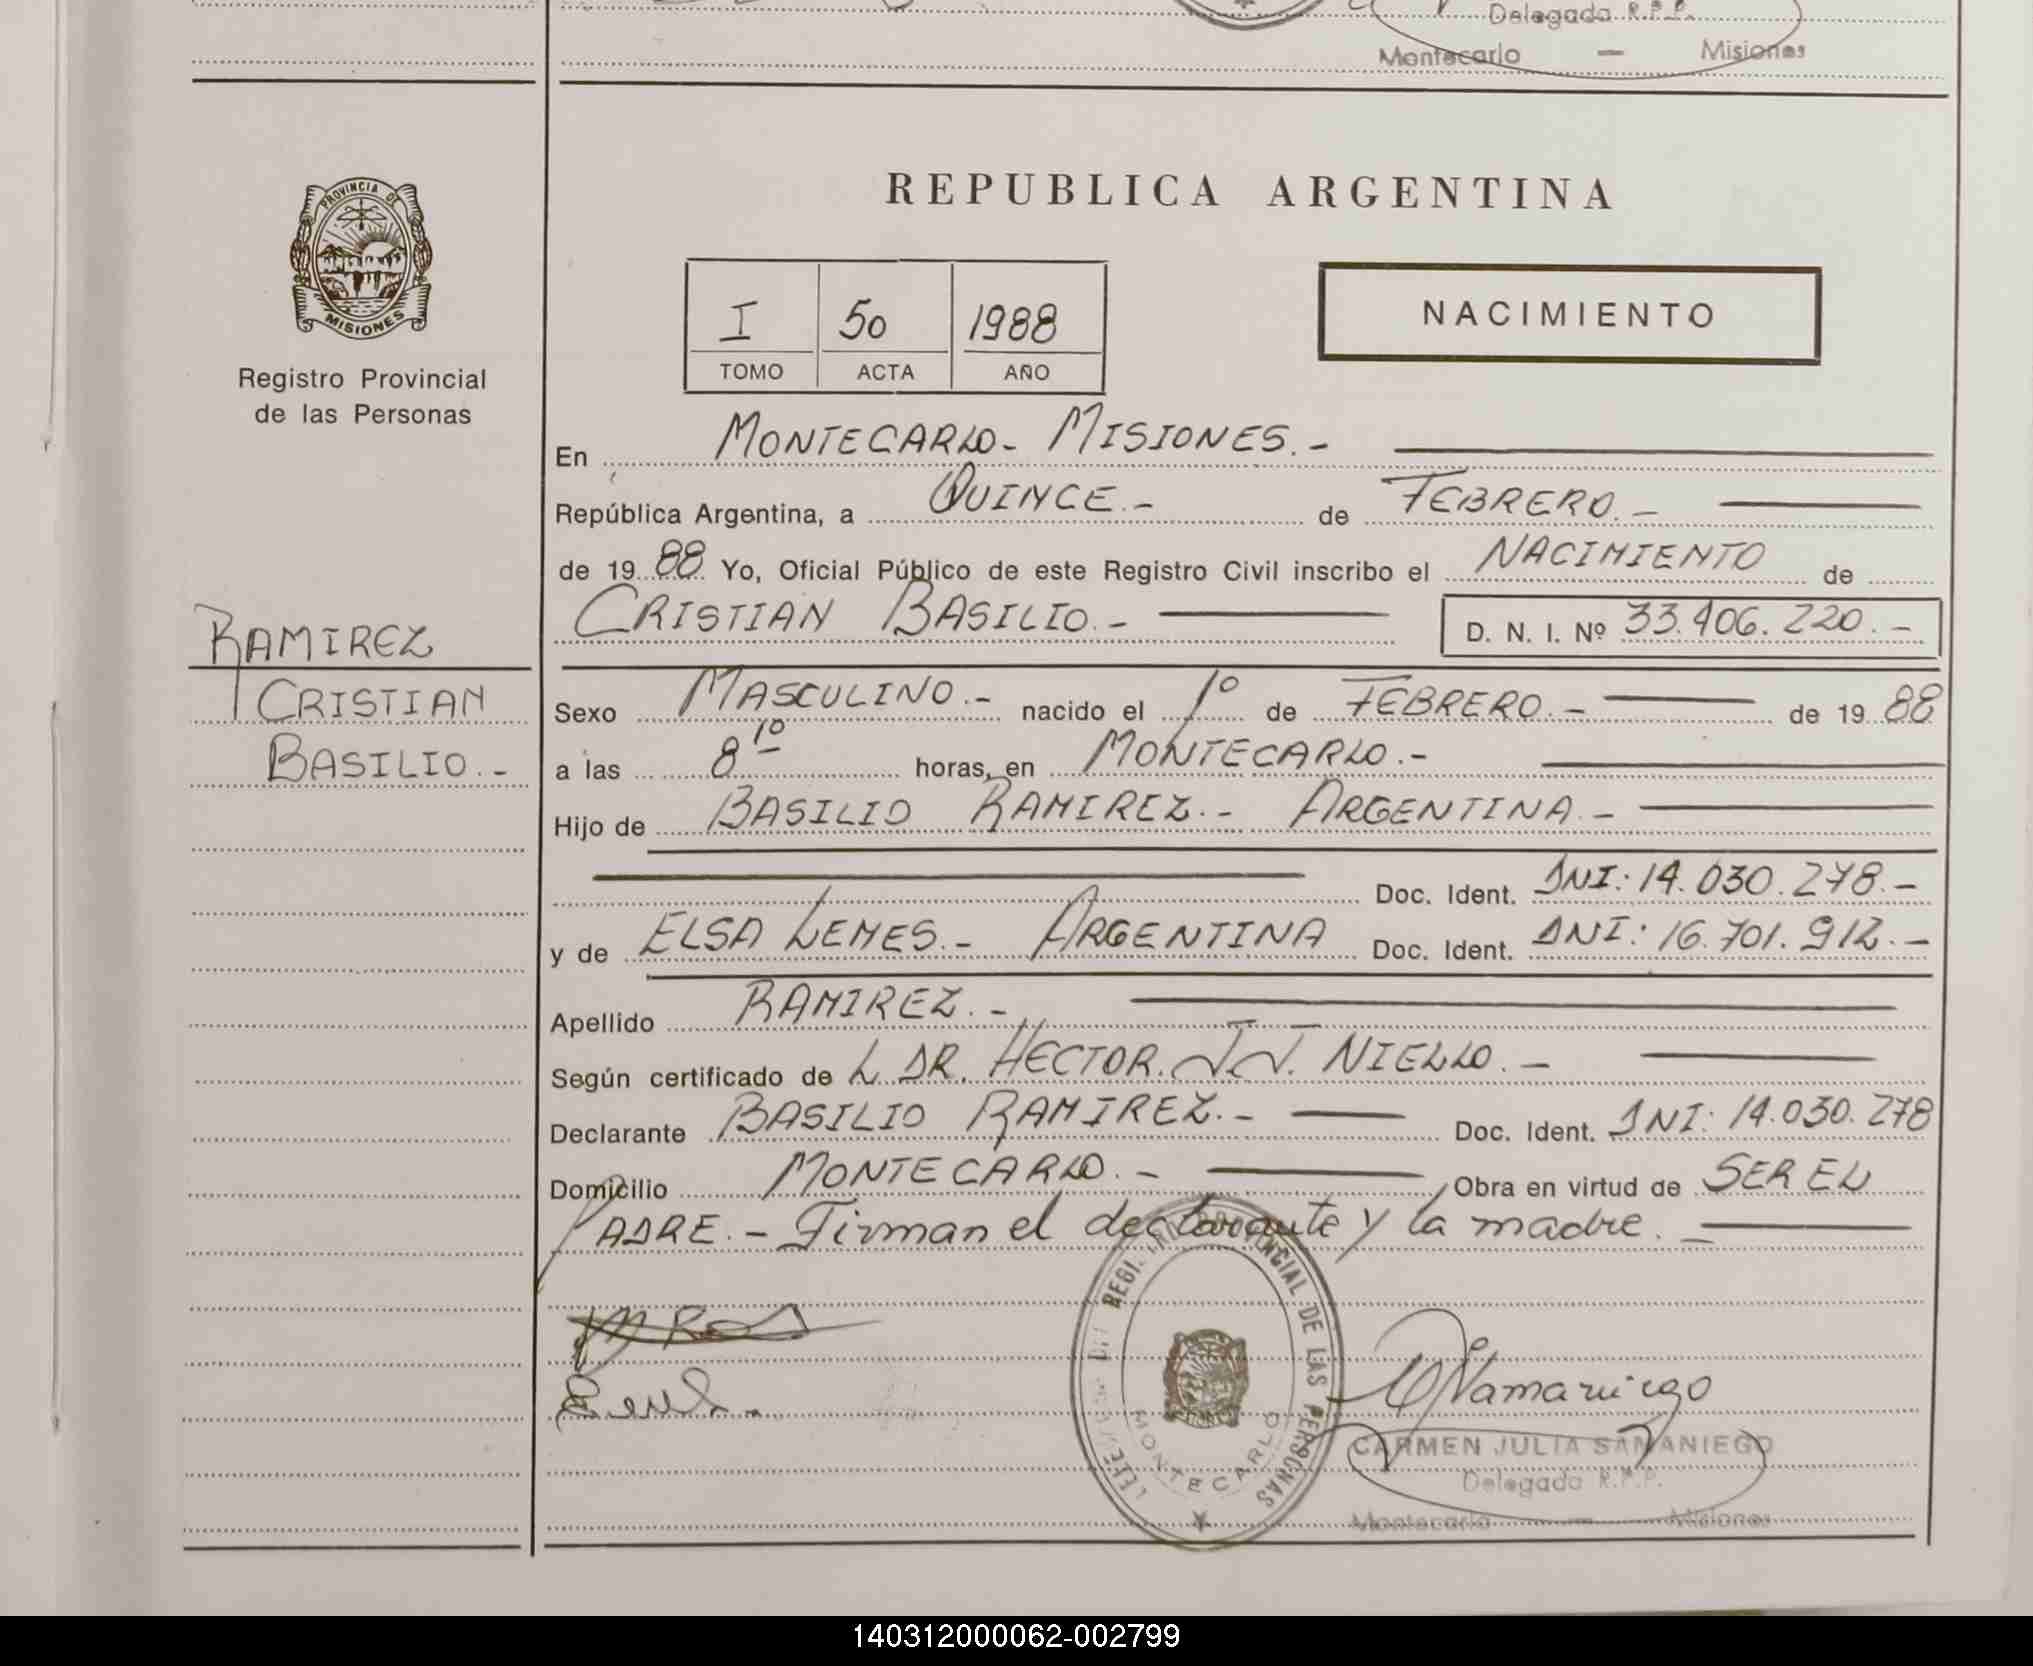 Delegada R.P.P.
Montecarlo — Misiones
PROVINCIA DE
MISIONES
Registro Provincial
de las Personas
RAMIREZ
CRISTIAN
BASILIO.-
REPUBLICA ARGENTINA
I 50 1988
TOMO ACTA AÑO
NACIMIENTO
En MONTECARLO- MISIONES.-
República Argentina, a QUINCE.- de FEBRERO.-
de 1988 Yo, Oficial Público de este Registro Civil inscribo el NACIMIENTO de
CRISTIAN BASILIO.- D. N. I. Nº 33.406.220.-
Sexo MASCULINO.- nacido el 1º de FEBRERO.- de 1988
a las 8 10 horas, en MONTECARLO.-
Hijo de BASILIO RAMIREZ.- ARGENTINA.-
Doc. Ident. DNI: 14.030.278.-
y de ELSA LEMES.- ARGENTINA Doc. Ident. DNI: 16.701.912.-
Apellido RAMIREZ.-
Según certificado de L DR. HECTOR. J.J. NIELLO.-
Declarante BASILIO RAMIREZ.- Doc. Ident. DNI: 14.030.278
Domicilio MONTECARLO.- Obra en virtud de SER EL
PADRE.- Firman el declarante y la madre.-
REGISTRO PROVINCIAL DE LAS PERSONAS
MONTECARLO
CARMEN JULIA SAMANIEGO
Delegada R.P.P.
Montecarlo — Misiones
140312000062-002799